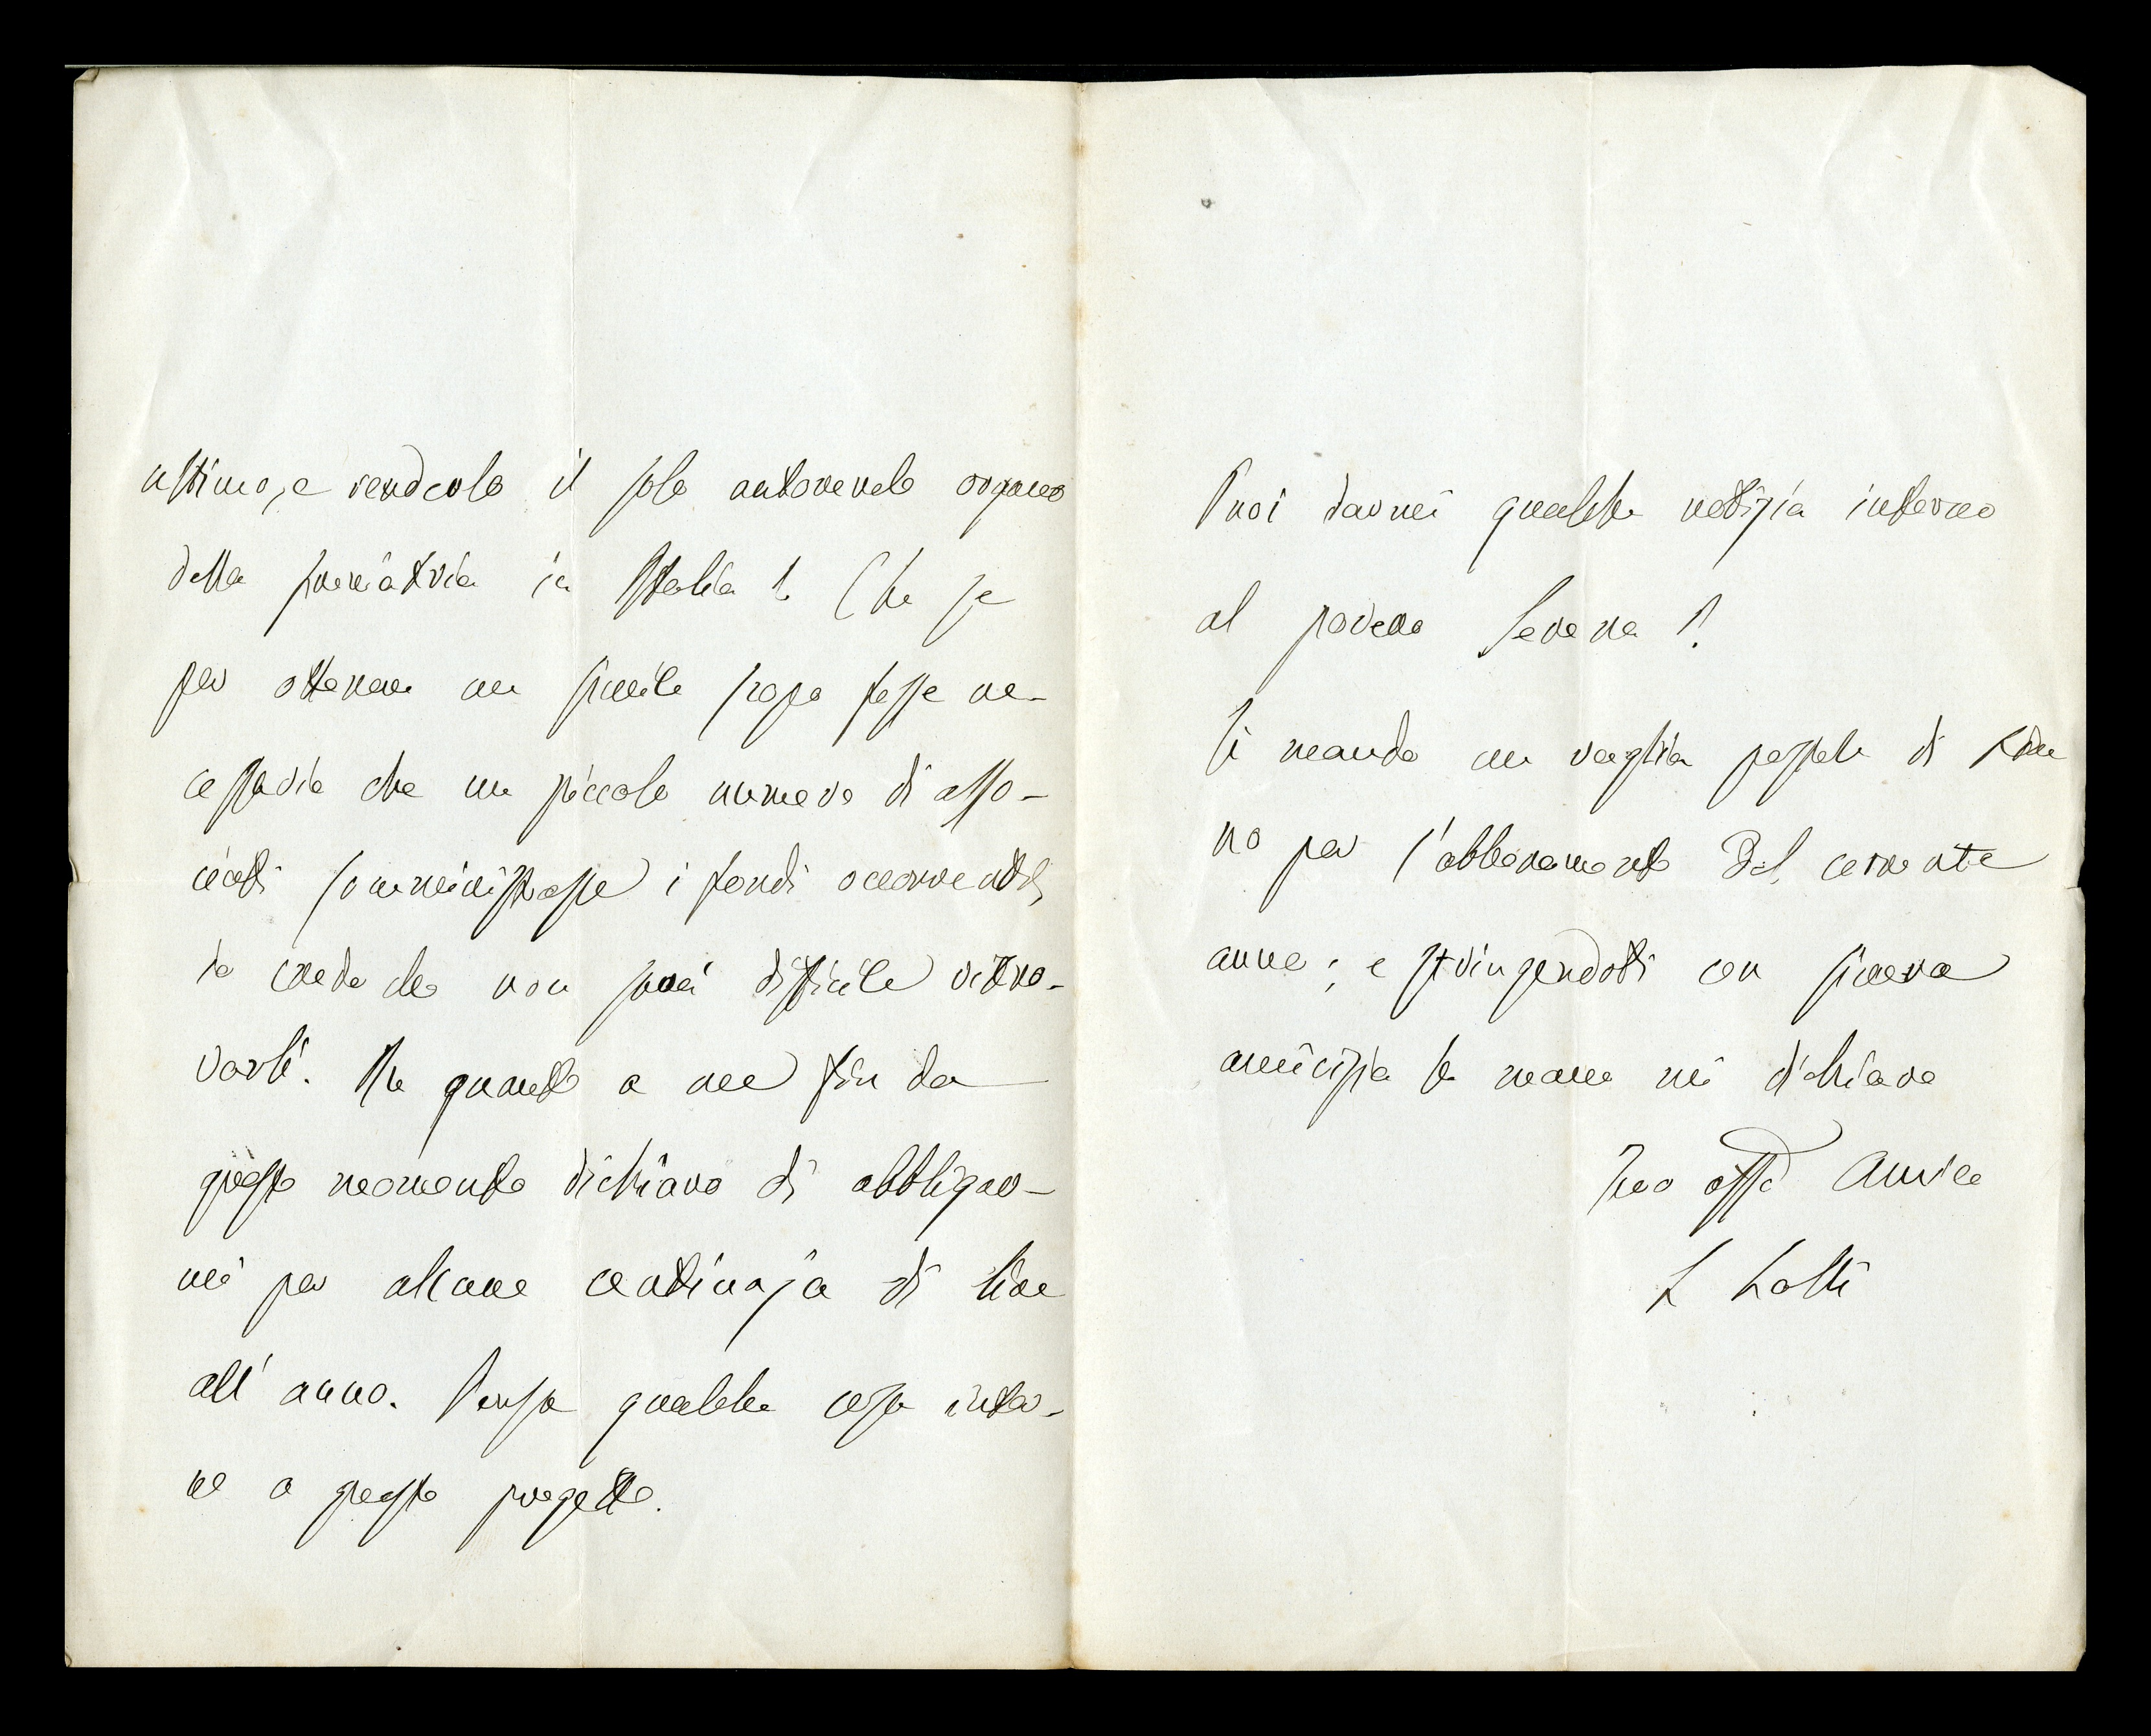 ultimo, e renderlo il solo autorevole organo
della freniatria in Italia? Che se
per ottenere un simile scopo fosse ne-
cessario che un piccolo numero di asso-
ciati somministrasse i fondi occorrenti,
io credo che non sarà difficile ritro-
varli. In quanto a me fin da
questo momento dichiaro di obbligar-
mi per alcune centinaja di lire
all'anno. Pensa qualche cosa intor-
no a questo progetto.
Puoi darmi qualche notizia intorno
al povero Livi?
Ti mando un vaglia postale di
no per l'abbonamento del corrente
anno; e stringendoti con sincera
amicizia la mano mi dichiaro
Tuo affo Amico
L Lolli